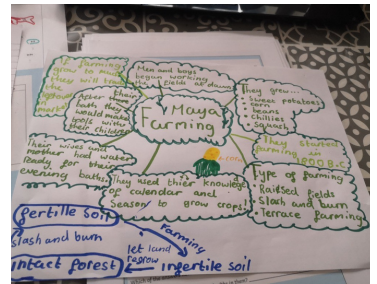 If farming
grow to much
they will trade
the
in market
Men and boys
began working
the fields at dawn
They grew...
• Sweet potatoes
• corn
• beans
• chillies
• Squash
After their
bath they
would make
tools with
their children
Maya
Farming
They started
farming in
B.C
Their wives and
mothers had water
ready for their
evening baths
They used thier knowledge
of calendar and
season to grow crops!
Type of farming
• Raidsed fields
• Slash and burn
• Terrace farming
fertille soil
slash and burn
intact forest
Farming
let land
regrow
infertile soil